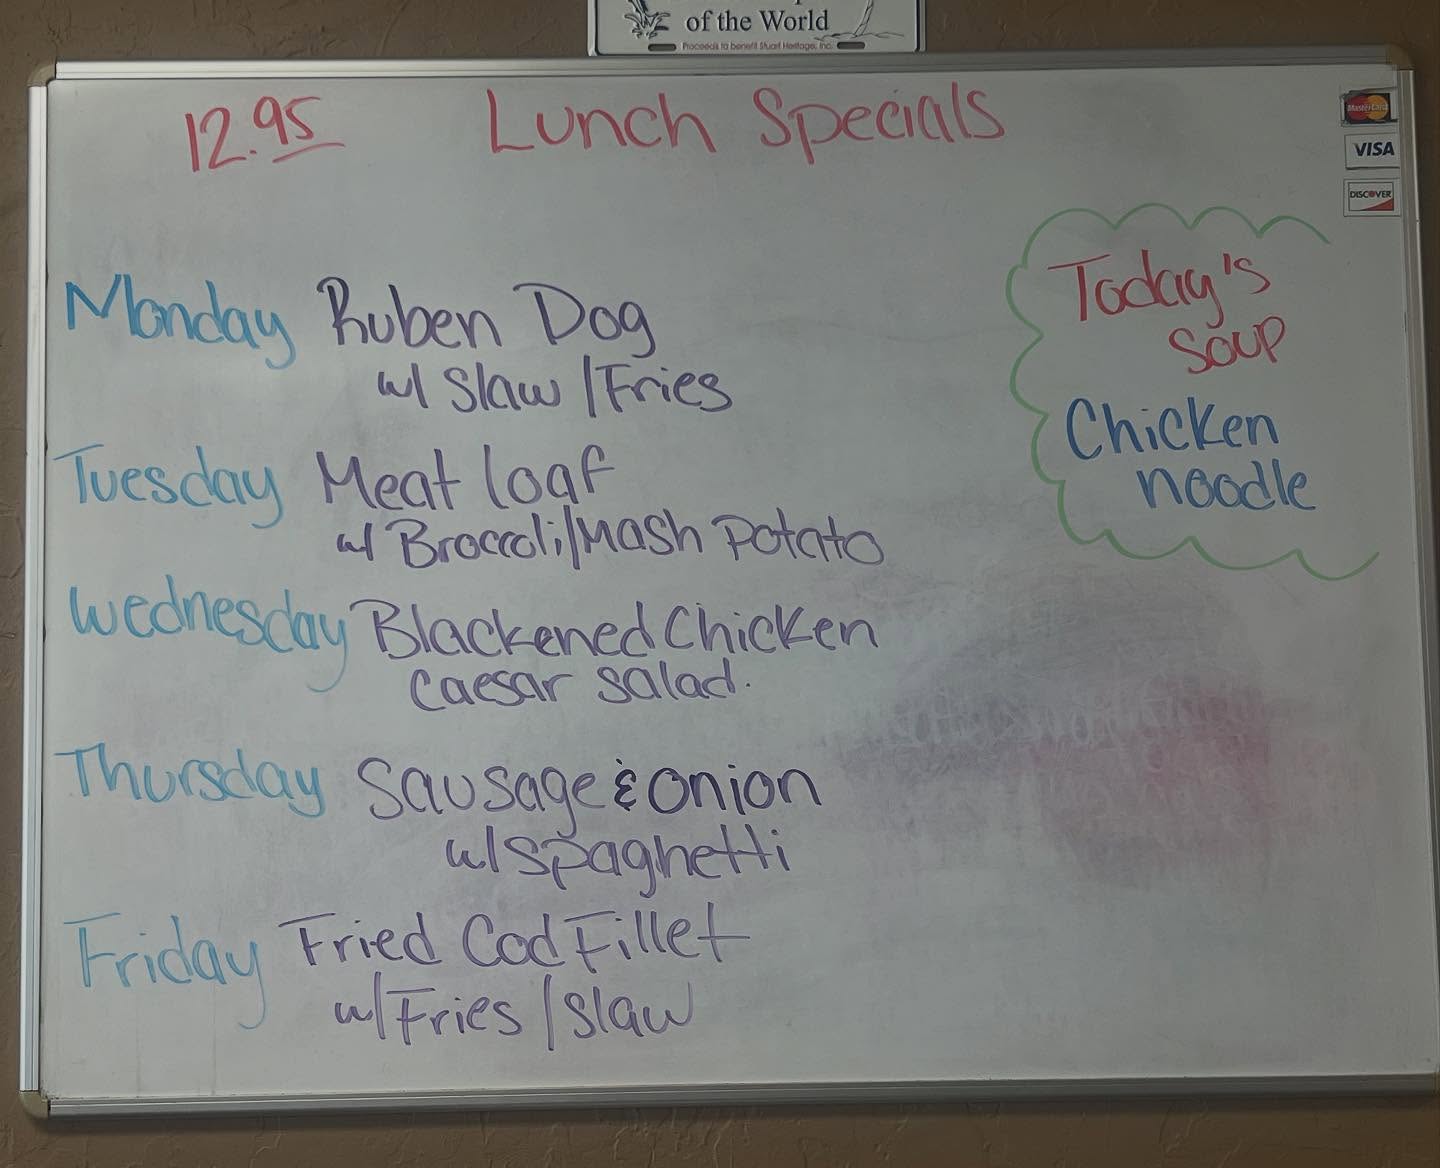 of the World
Proceeds to benefit Stuart Heritage, Inc.
12.95 Lunch Specials
MasterCard
VISA
DISCOVER
Monday Ruben Dog
w/ Slaw / Fries
Tuesday Meat loaf
w/ Broccoli/Mash Potato
Wednesday Blackened Chicken
Caesar Salad.
Thursday Sausage & onion
w/ Spaghetti
Friday Fried Cod Fillet
w/ Fries / Slaw
Today's
Soup
Chicken
noodle